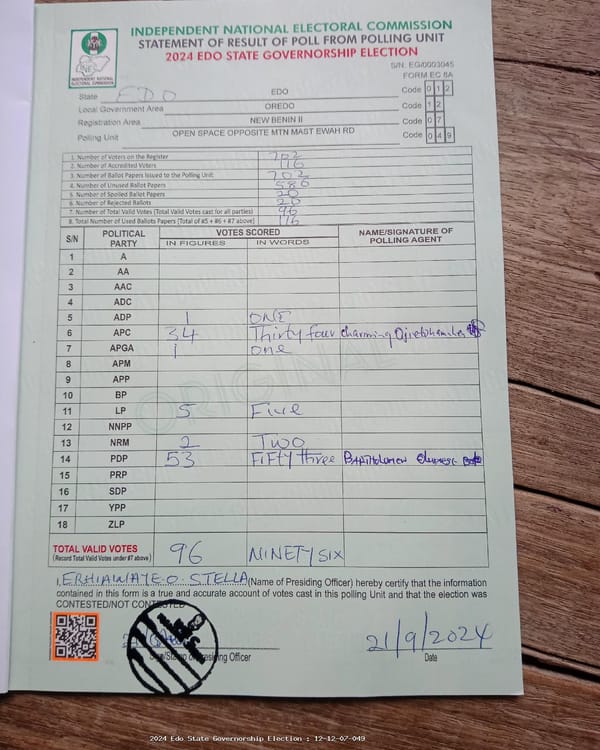 INDEPENDENT NATIONAL ELECTORAL COMMISSION
STATEMENT OF RESULT OF POLL FROM POLLING UNIT
2024 EDO STATE GOVERNORSHIP ELECTION
S/N: EG/0003045
FORM EC 8A
INDEPENDENT NATIONAL ELECTORAL COMMISSION
State EDO EDO Code 0 1 2
Local Government Area OREDO Code 1 2
Registration Area NEW BENIN II Code 0 7
Polling Unit OPEN SPACE OPPOSITE MTN MAST EWAH RD Code 0 4 9
1. Number of Voters on the Register 702
2. Number of Accredited Voters 116
3. Number of Ballot Papers Issued to the Polling Unit 702
4. Number of Unused Ballot Papers 586
5. Number of Spoiled Ballot Papers 20
6. Number of Rejected Ballots 20
7. Number of Total Valid Votes (Total Valid Votes cast for all parties) 96
8. Total Number of Used Ballots Papers (Total of #5 + #6 + #7 above) 116
S/N POLITICAL PARTY VOTES SCORED NAME/SIGNATURE OF POLLING AGENT
IN FIGURES IN WORDS
1 A
2 AA
3 AAC
4 ADC
5 ADP 1 ONE
6 APC 34 Thirty four charming
7 APGA 1 one
8 APM
9 APP
10 BP
11 LP 5 Five
12 NNPP
13 NRM 2 Two
14 PDP 53 FIFTY three
15 PRP
16 SDP
17 YPP
18 ZLP
ORIGINAL
TOTAL VALID VOTES 96 NINETY SIX
(Record Total Valid Votes under #7 above)
I, STELLA (Name of Presiding Officer) hereby certify that the information
contained in this form is a true and accurate account of votes cast in this polling Unit and that the election was
CONTESTED/NOT CONTESTED
21/9/2024
Presiding Officer Date
2024 Edo State Governorship Election : 12-12-07-049